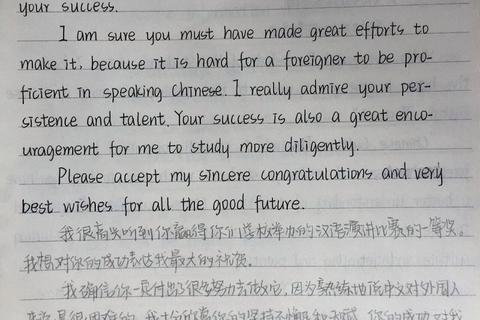 your success.
I am sure you must have made great efforts to
make it, because it is hard for a foreigner to be pro-
ficient in speaking Chinese. I really admire your per-
sistence and talent. Your success is also a great enco-
uragement for me to study more diligently.
Please accept my sincere congratulations and very
best wishes for all the good future.
我很高兴听到你赢得你们学校举办的汉语演讲比赛的一等奖。
我想对你的成功表达我最大的祝贺。
我确信你一定付出很多努力去做它，因为熟练地说中文对外国人
来说是很困难的。我十分欣赏你的坚持不懈和天赋。你的成功对我